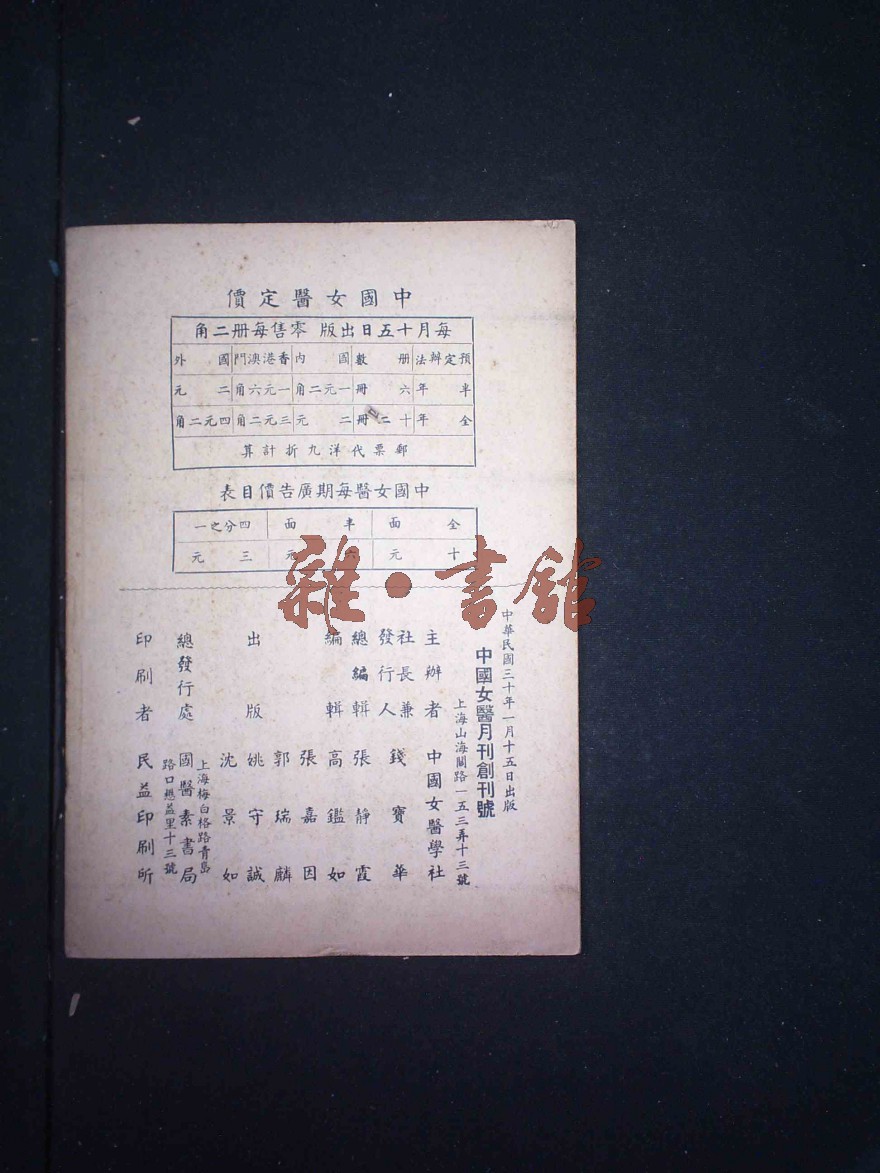 中國女醫定價
每月十五日出版 零售每册二角
預定辦法 册數 國內 香港澳門 國外
半年 六册 一元二角 一元六角 二元
全年 十二册 二元 三元二角 四元二角
郵票代洋九折計算
中國女醫每期廣告價目表
全面 半面 四分之一
十元 六元 三元
中華民國三十年一月十五日出版
中國女醫月刊創刊號
上海山海關路一五三弄十三號
主辦者 中國女醫學社
社長兼
發行人 錢寶華
總編輯 張靜霞
編輯 高鑑如
張嘉因
郭瑞麟
出版 姚守誠
沈景如
上海梅白格路青島
總發行處 國醫素書局
路口懋益里十三號
印刷者 民益印刷所
雜·書館